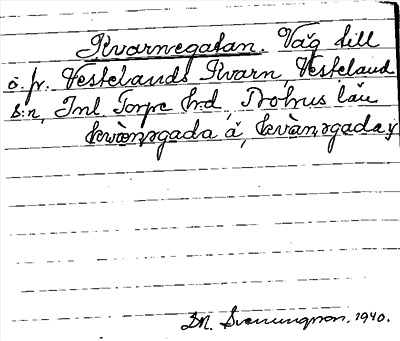 Kvarnegatan. Väg till
o. fr. Vestelands Kvarn, Vesteland
s:n, Inl. Torpe hd, Bohus län
kvànrgada å, kvànrgada
Svenungson. 1940.